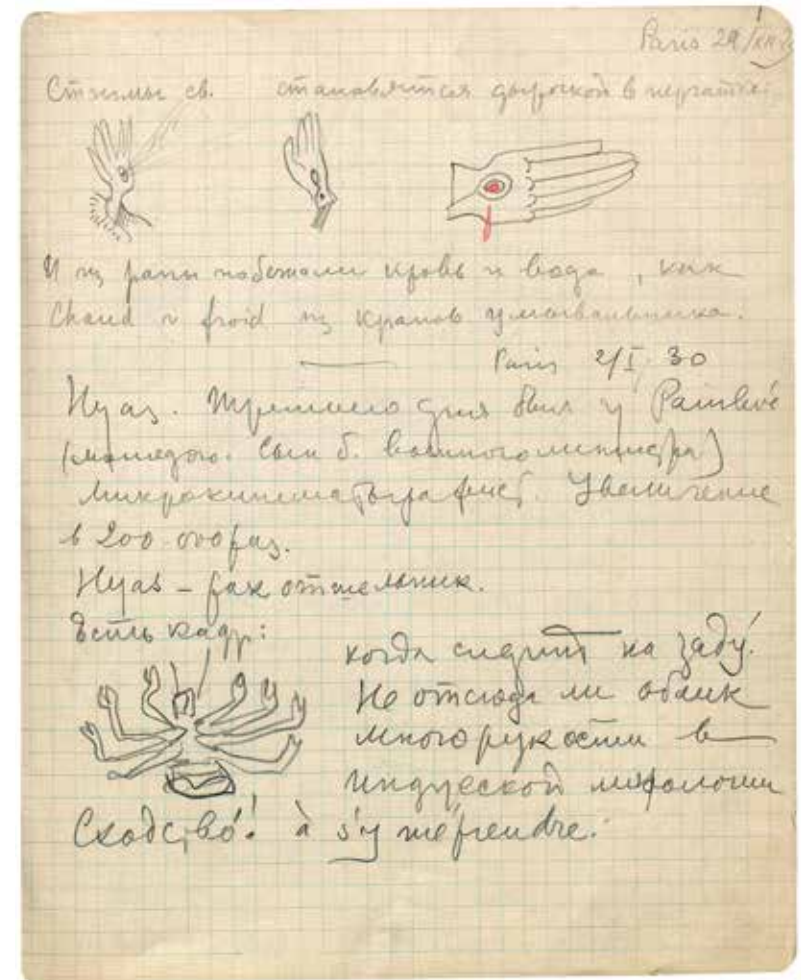 Paris 29/XII
Стигмы св. становятся дырочкой в перчатке.
И из раны побежали кровь и вода, как
Chaud и froid из кранов умывальника.
Paris 2/I 30
Hyas. Третьего дня был у Painlevé
(молодого. Сын б. военного министра)
микрокинематографист. Увеличение
в 200.000 раз.
Hyas – рак отшельник.
Есть кадр:
когда сидит на заду.
Не отсюда ли облик
многорукости в
индусской мифологии
Сходство! à s'y méprendre.